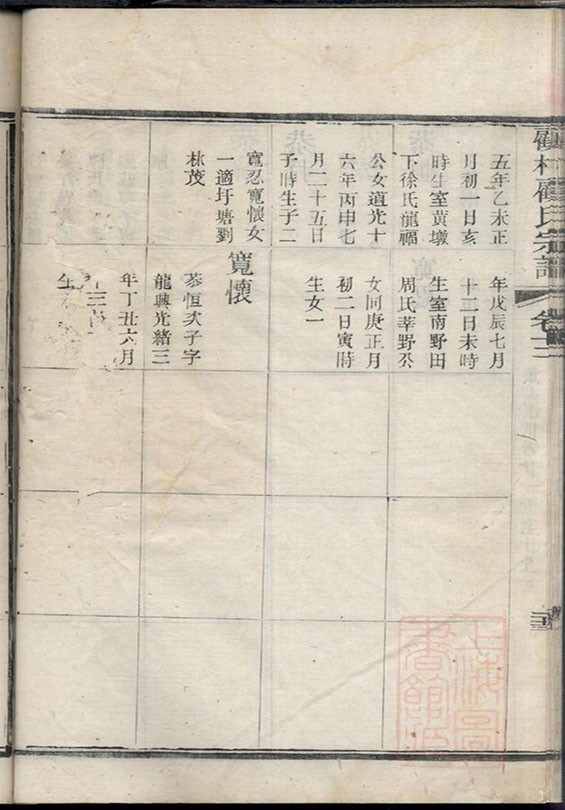 顧村顧氏宗譜
卷十三
五年乙未正
月初一日亥
時生室黃墩
下徐氏龍福
公女道光十
六年丙申七
月二十五日
子時生子二
寬忍寬懷女
一適圩塘劉
林茂
年戊辰七月
十二日未時
生室南野田
周氏莘野公
女同庚正月
初二日寅時
生女一
寬懷
恭恒次子字
龍興光緒三
年丁丑六月
生
上海圖書館藏